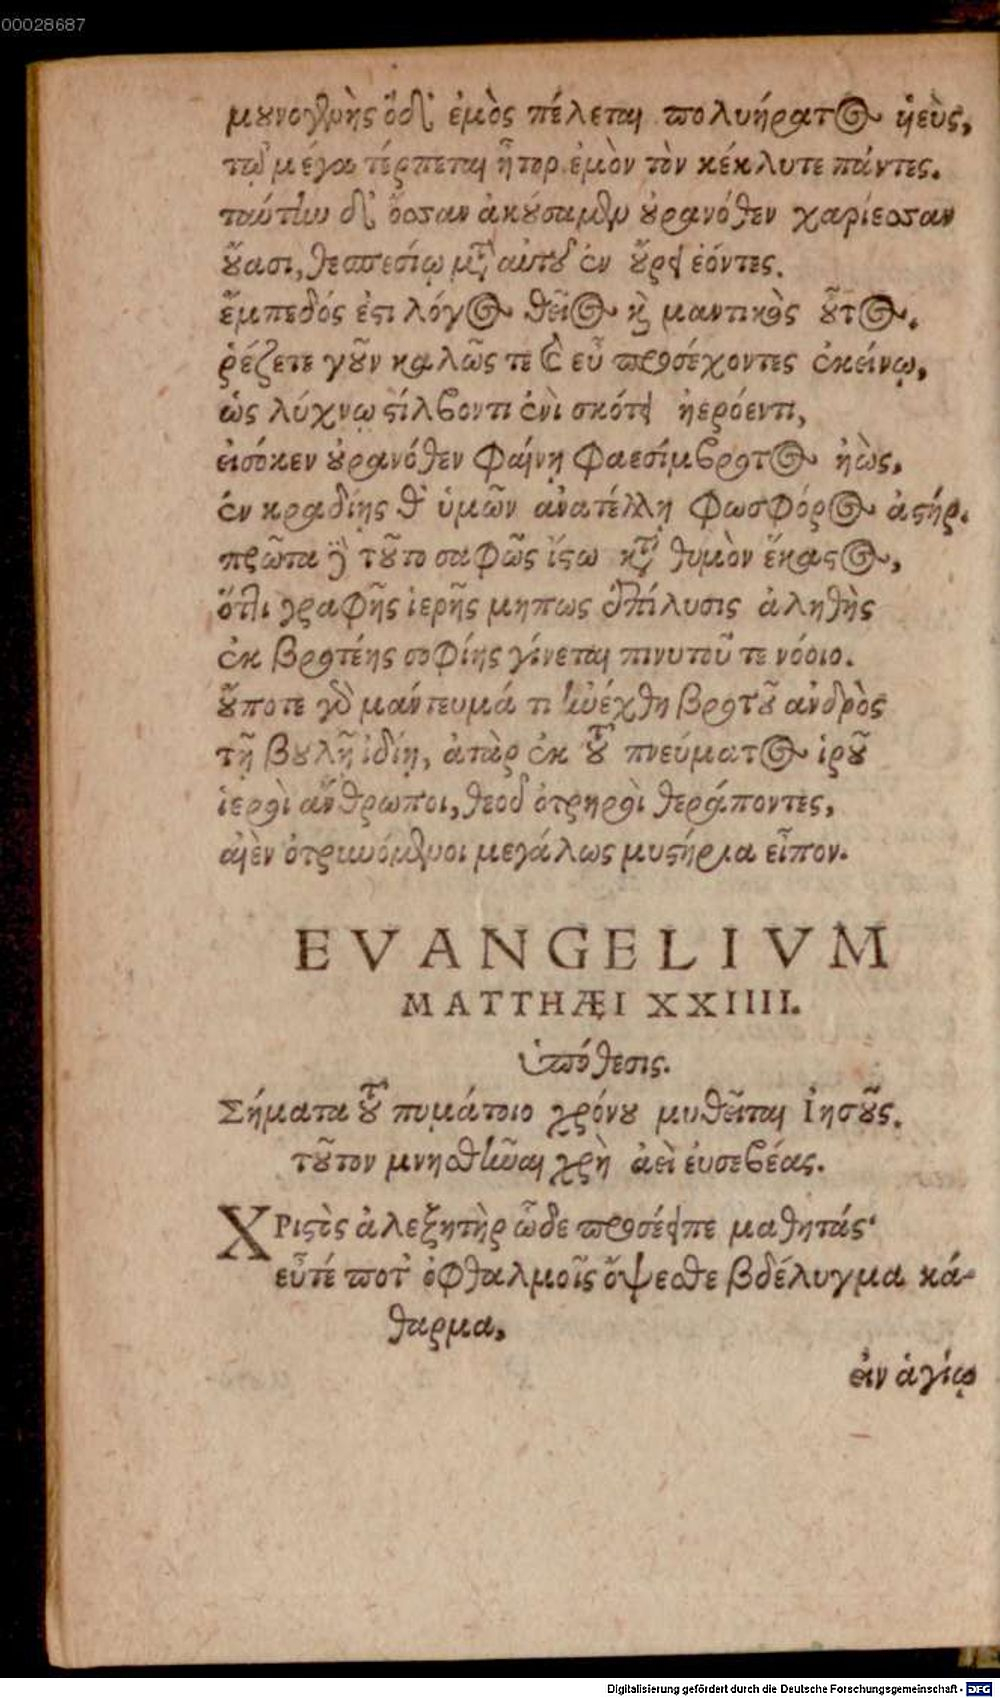 00028687
μουνογενὴς ὅδ' ἐμὸς πέλεται πολυήρατος ὑεὺς,
τῷ μέγα τέρπεται ἦτορ ἐμὸν τὸν κέκλυτε πάντες.
ταύτην δ' ὄσσαν ἀκούσαμεν οὐρανόθεν χαρίεσσαν
οὔασι, θεσπεσίῳ μετ' αὐτοῦ ἐν οὔρει ἐόντες.
ἔμπεδός ἐστι λόγος θεῖος καὶ μαντικὸς οὗτος.
ῥέζετε γοῦν καλῶς τε καὶ εὖ προσέχοντες ἐκείνῳ,
ὡς λύχνῳ στίλβοντι ἐνὶ σκότει ἠερόεντι,
εἰσόκεν οὐρανόθεν φαίνῃ φαεσίμβροτος ἠὼς,
ἐν κραδίῃς θ' ὑμῶν ἀνατέλλῃ φωσφόρος ἀστήρ.
πρῶτα δὲ τοῦτο σαφῶς ἴστω κατὰ θυμὸν ἕκαστος,
ὅττι γραφῆς ἱερῆς μήπως ἐπίλυσις ἀληθὴς
ἐκ βροτέης σοφίης γίνεται πινυτοῦ τε νόοιο.
οὔποτε γὰρ μάντευμά τι ἠνέχθη βροτοῦ ἀνδρὸς
τῇ βουλῇ ἰδίῃ, ἀτὰρ ἐκ τοῦ πνεύματος ἱροῦ
ἱεροὶ ἄνθρωποι, θεοῦ ὀτρηροὶ θεράποντες,
αἰὲν ὀτρυνόμενοι μεγάλως μυστήρια εἶπον.
EVANGELIVM
MATTHÆI XXIIII.
ὑπόθεσις.
Σήματα τοῦ πυμάτοιο χρόνου μυθεῖται Ἰησοῦς.
τοῦτον μνησθῆναι χρὴ ἀεὶ εὐσεβέας.
ΧΡιστὸς ἀλεξητὴρ ὧδε προσέειπε μαθητάς·
εὖτέ ποτ' ὀφθαλμοῖς ὄψεσθε βδέλυγμα κά-
θαρμα,
εἰν ἁγίῳ
Digitalisierung gefördert durch die Deutsche Forschungsgemeinschaft - DFG